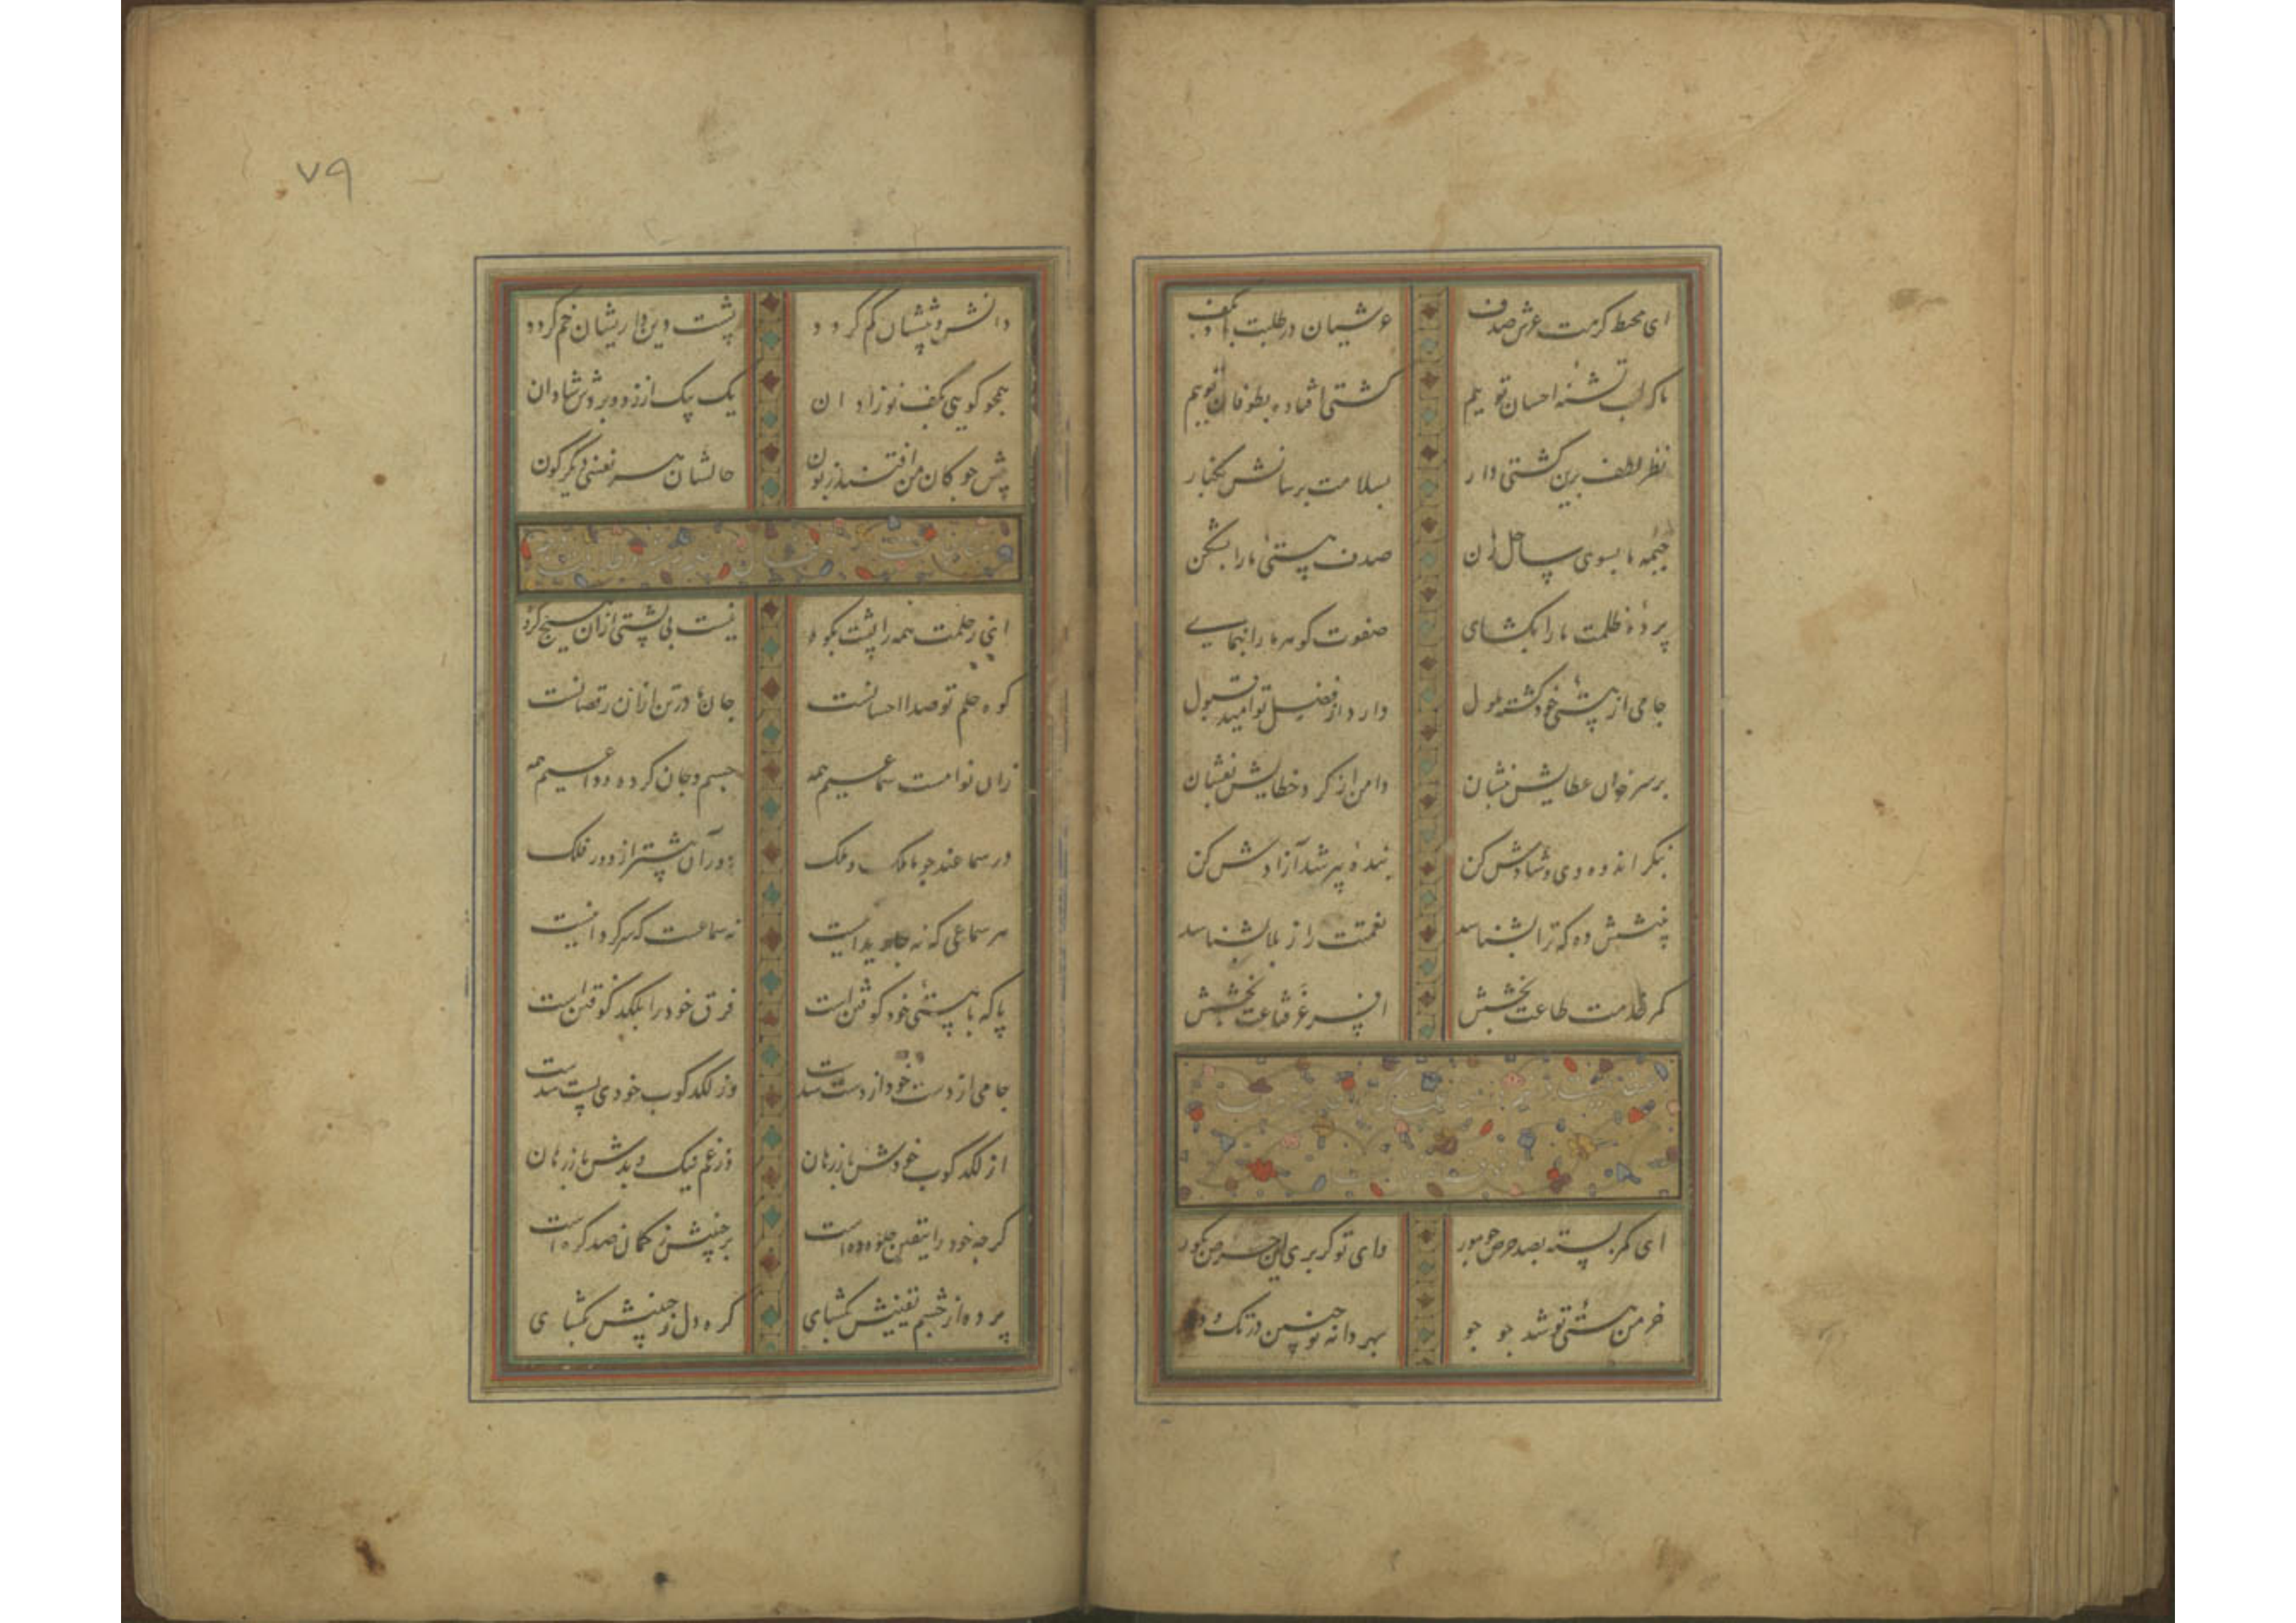 ای محیط کرمت عرش صدف عرشیان در طلبت باد بکف
ما که لب تشنه احسان توییم کشتی افتاده بطوفان توییم
نظر لطف برین کشتی دار بسلامت برسانش بکنار
خیمه ما بسوی ساحل زن صدف هستی ما را بشکن
پرده ظلمت ما را بکشای صفوت کوهر ما را بنمای
جامی از هستی خود کشته ملول دارد از فضل تو امید قبول
بر سر خوان عطایش بنشان دامن از کرد خطایش بفشان
بنکر اندوه وی و شادش کن بنده پیر شد آزادش کن
بینشش ده که ترا بشناسد نعمتت را ز بلا بشناسد
کمر خدمت طاعت بخش افسر عز قناعت بخش
ای کمر بسته بصد حرص چو مور وای تو کر بری این حرص بکور
خرمن هستی تو شد جو جو بهر دانه تو چنین در تک و دو
٧٩
دانش و بینشان کم کردد پشت دین داریشان خم کردد
همچو کویی بکف نوزادان یک بیک از زد و بردش شادان
پیش چوکان من افتند زبون حالشان هر نفسی دیکرکون
ای ز حلمت همه را پشت بکوه نیست بی پشتی از آن هیچ کروه
کوه حلم تو صدا احسانست جانها در تن از آن رقصانست
زان نوا مست سماعیم همه جسم و جان کرده وداعیم همه
در سماعند چو ما ملک و ملک دور آن بیشتر از دور فلک
هر سماعی که نه جاویدانیست نه سماعست که سرکردانیست
پا که با هستی خود کوفتن است فرق خود را بلکد کوفتن است
جامی از دست خود از دست شدست وز لکدکوب خودی پست شدست
از لکدکوب خودش باز رهان وز غم نیک و بدش باز رهان
کرچه خود را بیقین جلوه ده است بر جبینش ز کمان صد کره است
پرده از چشم یقینش بکشای کره دل ز جبینش بکشای